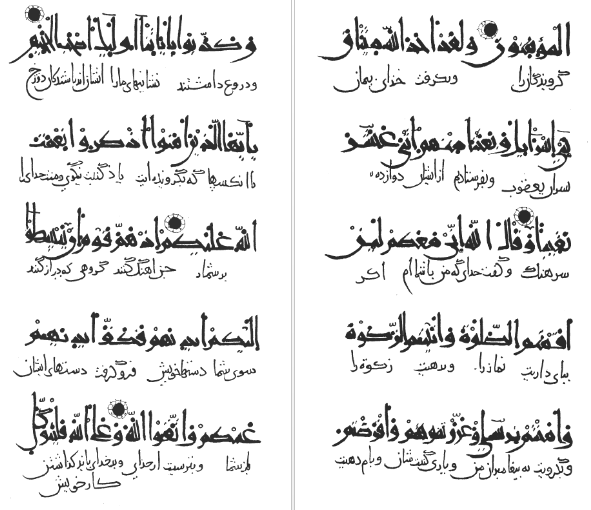 وكذبوا باياتنا اولئك اصحاب الجحيم
ودروغ داشتند نشانیهای مارا ایشان اند باشندگان دوزخ
يايها الذين امنوا اذكروا نعمت
یا انکسها که بگرویده ایت یاد کنیت نیکوی ومنت خدای را
الله عليكم اذ هم قوم ان يبسطوا
بر شما جز اهنگ کنند گروهی که دراز کنند
اليكم ايديهم فكف ايديهم
سوی شما دستهاخویش فروگرفت دستهای ایشان
عنكم واتقوا الله وعلى الله فليتوكل
از شما وبترسیت از خدای وبخدای باید کداشتن
کار خویش
المؤمنون ولقد اخذ الله ميثاق
گرویدگان را وبگرفت خدای پیمان
بني اسرايل وبعثنا منهم اثني عشر
پسران یعقوب وبفرستادیم از ایشان دوازده
نقيبا وقال الله اني معكم لئن
سرهنگ وگفت خدای که من با شماام اگر
اقمتم الصلوة واتيتم الزكوة
بپای داریت نماز را وبدهیت زکوة را
وامنتم برسلي وعزرتموهم واقرضتم
وبگرویت به پیغامبران من ویاری کنیت شان ووام دهیت